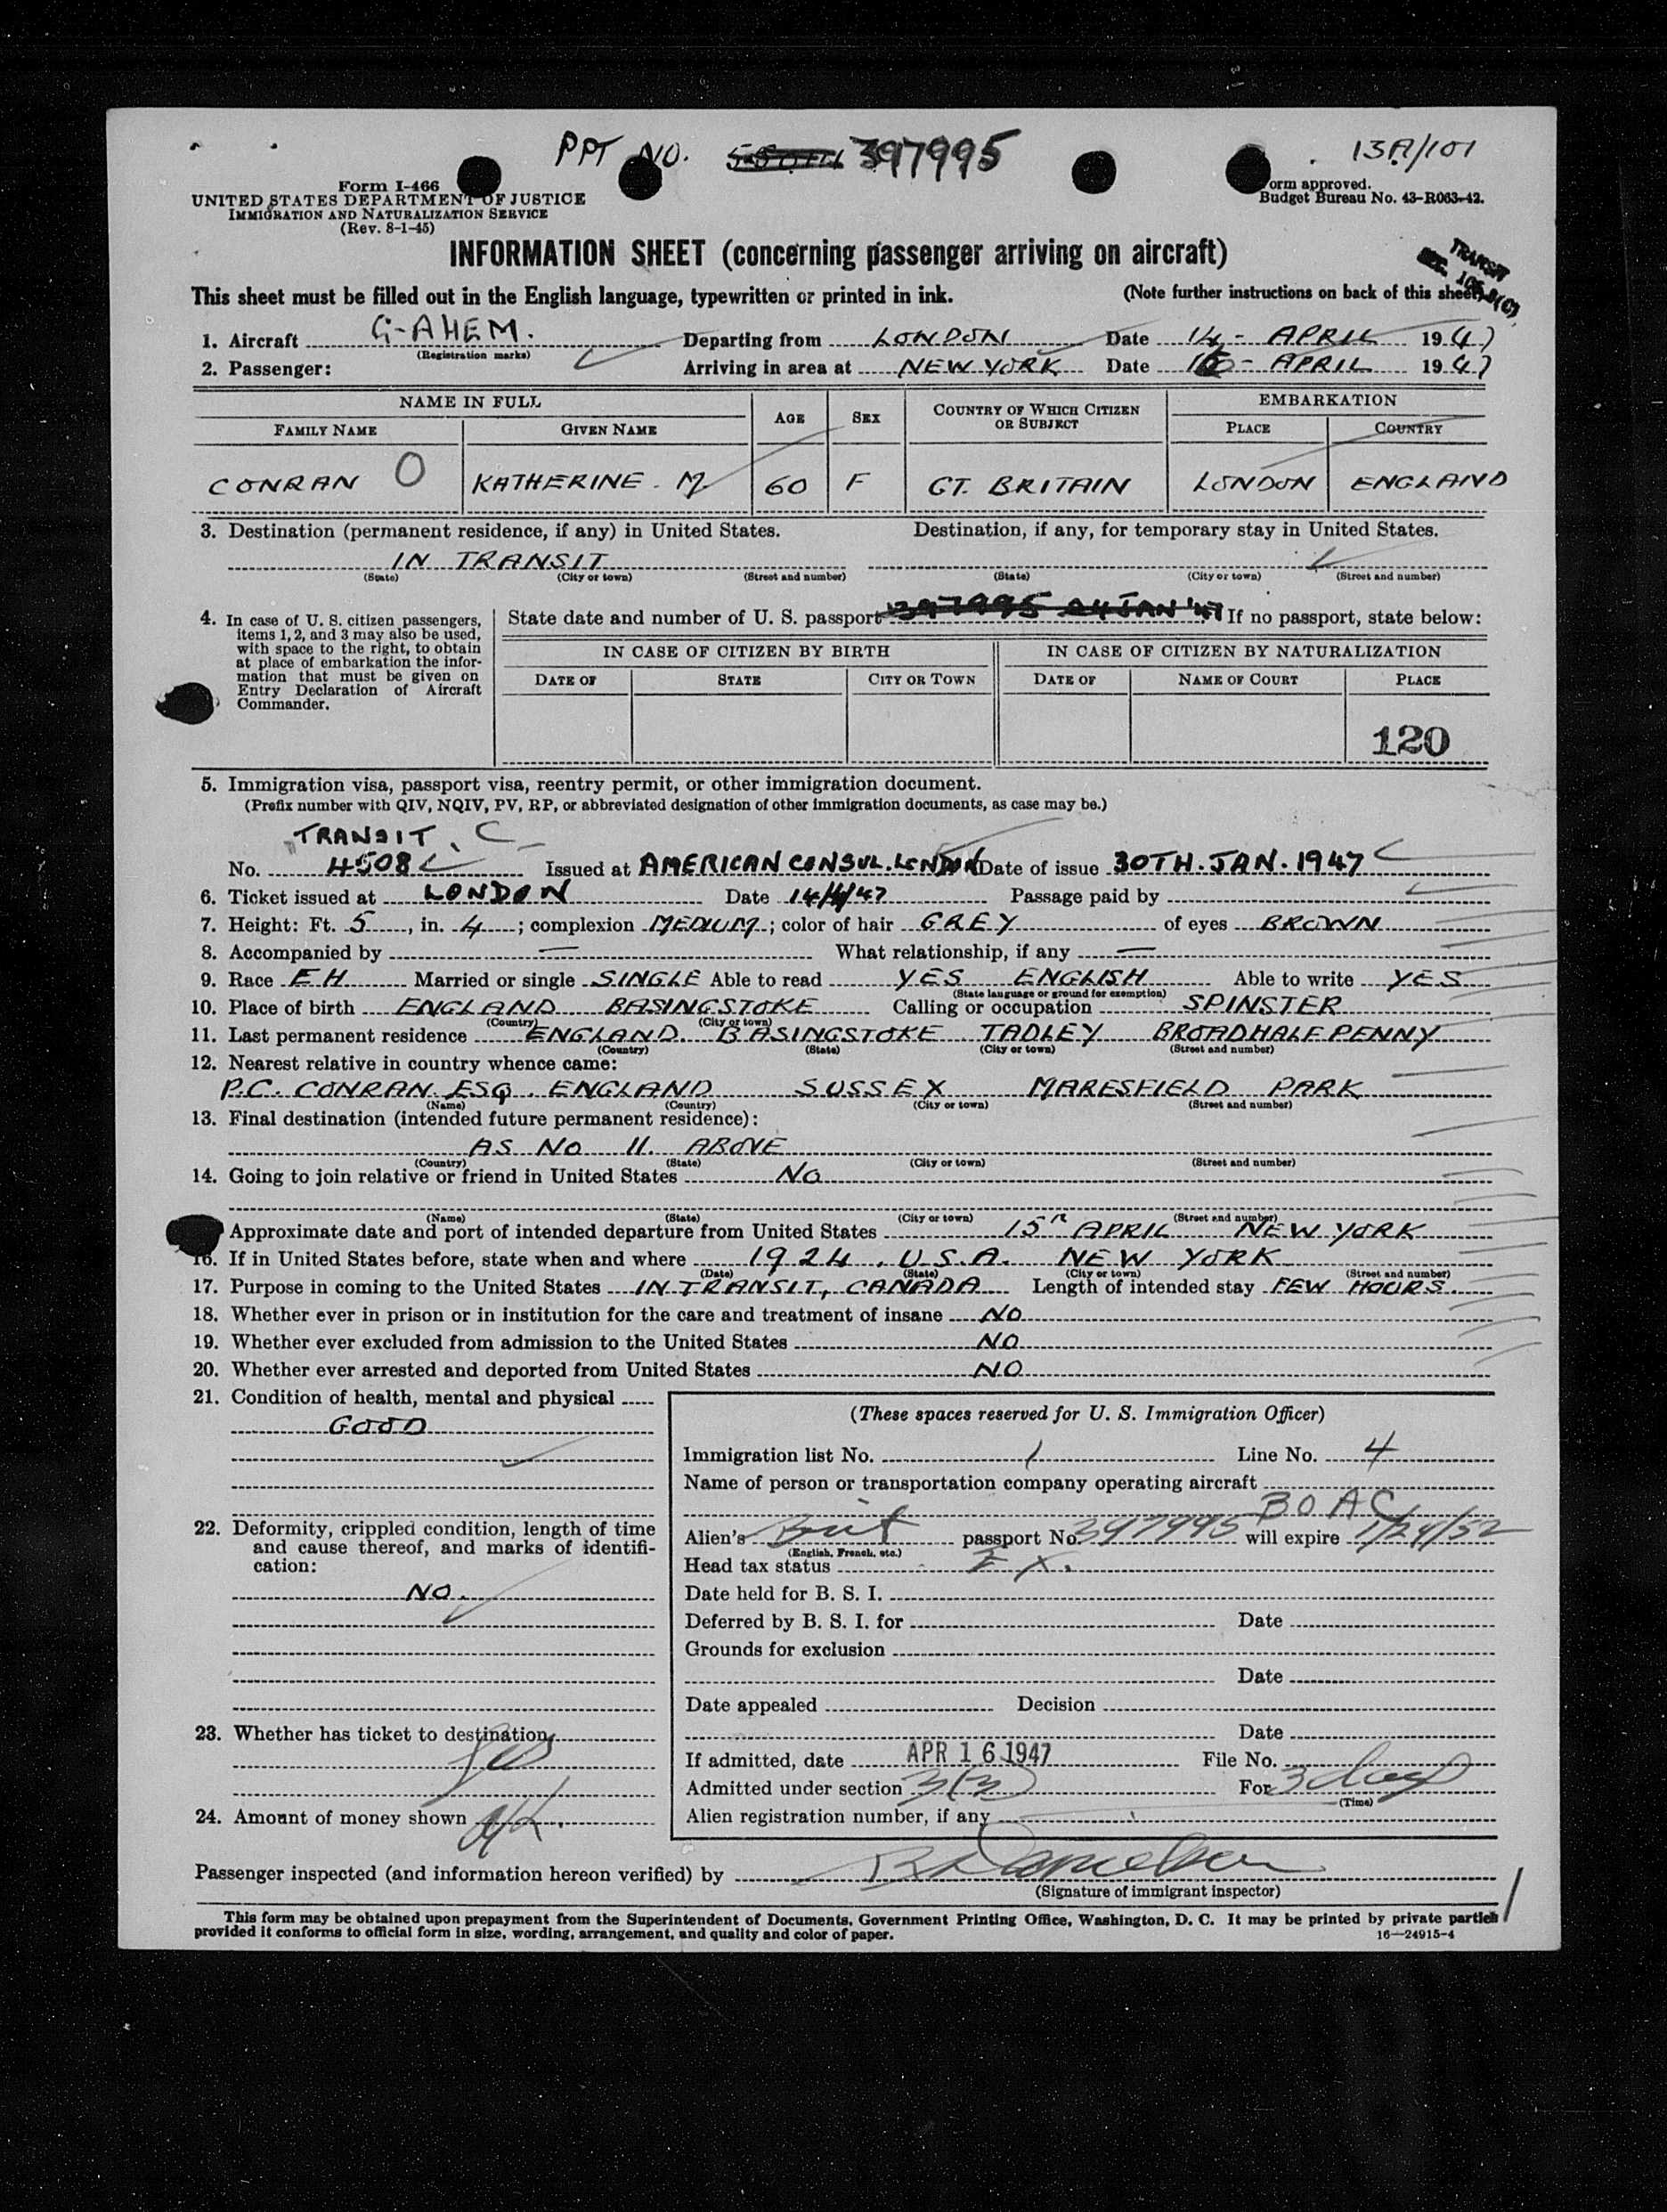 PPT NO. 397995
13A/101
Form I-466
UNITED STATES DEPARTMENT OF JUSTICE
IMMIGRATION AND NATURALIZATION SERVICE
(Rev. 8-1-45)
orm approved.
Budget Bureau No. 43-R063-42.
INFORMATION SHEET (concerning passenger arriving on aircraft)
TRANSIT
This sheet must be filled out in the English language, typewritten or printed in ink. (Note further instructions on back of this sheet)
1. Aircraft G-AHEM. Departing from LONDON Date 14 - APRIL 1947
(Registration marks)
2. Passenger: Arriving in area at NEW YORK Date 16 - APRIL 1947
NAME IN FULL AGE SEX COUNTRY OF WHICH CITIZEN OR SUBJECT EMBARKATION
FAMILY NAME GIVEN NAME PLACE COUNTRY
CONRAN O KATHERINE. M. 60 F GT. BRITAIN LONDON ENGLAND
3. Destination (permanent residence, if any) in United States. Destination, if any, for temporary stay in United States.
IN TRANSIT
(State) (City or town) (Street and number) (State) (City or town) (Street and number)
4. In case of U. S. citizen passengers, items 1, 2, and 3 may also be used, with space to the right, to obtain at place of embarkation the information that must be given on Entry Declaration of Aircraft Commander.
State date and number of U. S. passport 397995 24 JAN '47 If no passport, state below:
IN CASE OF CITIZEN BY BIRTH IN CASE OF CITIZEN BY NATURALIZATION
DATE OF STATE CITY OR TOWN DATE OF NAME OF COURT PLACE
120
5. Immigration visa, passport visa, reentry permit, or other immigration document.
(Prefix number with QIV, NQIV, PV, RP, or abbreviated designation of other immigration documents, as case may be.)
TRANSIT. C
No. 4508 Issued at AMERICAN CONSUL. LONDON Date of issue 30TH. JAN. 1947
6. Ticket issued at LONDON Date 14/4/47 Passage paid by
7. Height: Ft. 5, in. 4; complexion MEDIUM; color of hair GREY of eyes BROWN
8. Accompanied by — What relationship, if any —
9. Race EH Married or single SINGLE Able to read YES ENGLISH Able to write YES
(State language or ground for exemption)
10. Place of birth ENGLAND BASINGSTOKE Calling or occupation SPINSTER
(Country) (City or town)
11. Last permanent residence ENGLAND. BASINGSTOKE TADLEY BROADHALFPENNY
(Country) (State) (City or town) (Street and number)
12. Nearest relative in country whence came:
P.C. CONRAN. ESQ. ENGLAND SUSSEX MARESFIELD PARK
(Name) (Country) (City or town) (Street and number)
13. Final destination (intended future permanent residence):
AS NO 11. ABOVE
(Country) (State) (City or town) (Street and number)
14. Going to join relative or friend in United States NO
(Name) (State) (City or town) (Street and number)
Approximate date and port of intended departure from United States 15 APRIL NEW YORK
16. If in United States before, state when and where 1924. U.S.A. NEW YORK
(Date) (State) (City or town) (Street and number)
17. Purpose in coming to the United States IN TRANSIT, CANADA Length of intended stay FEW HOURS.
18. Whether ever in prison or in institution for the care and treatment of insane NO
19. Whether ever excluded from admission to the United States NO
20. Whether ever arrested and deported from United States NO
21. Condition of health, mental and physical
GOOD
22. Deformity, crippled condition, length of time and cause thereof, and marks of identification:
NO.
23. Whether has ticket to destination
Yes
24. Amount of money shown
(These spaces reserved for U. S. Immigration Officer)
Immigration list No. 1 Line No. 4
Name of person or transportation company operating aircraft
BOAC
Alien's Brit passport No. 397995 will expire 1/24/52
(English, French, etc.)
Head tax status EX.
Date held for B. S. I.
Deferred by B. S. I. for Date
Grounds for exclusion
Date
Date appealed Decision
Date
If admitted, date APR 16 1947 File No.
Admitted under section 3(3) For 3 days
(Time)
Alien registration number, if any
Passenger inspected (and information hereon verified) by
(Signature of immigrant inspector)
This form may be obtained upon prepayment from the Superintendent of Documents, Government Printing Office, Washington, D. C. It may be printed by private parties
provided it conforms to official form in size, wording, arrangement, and quality and color of paper. 16—24915-4